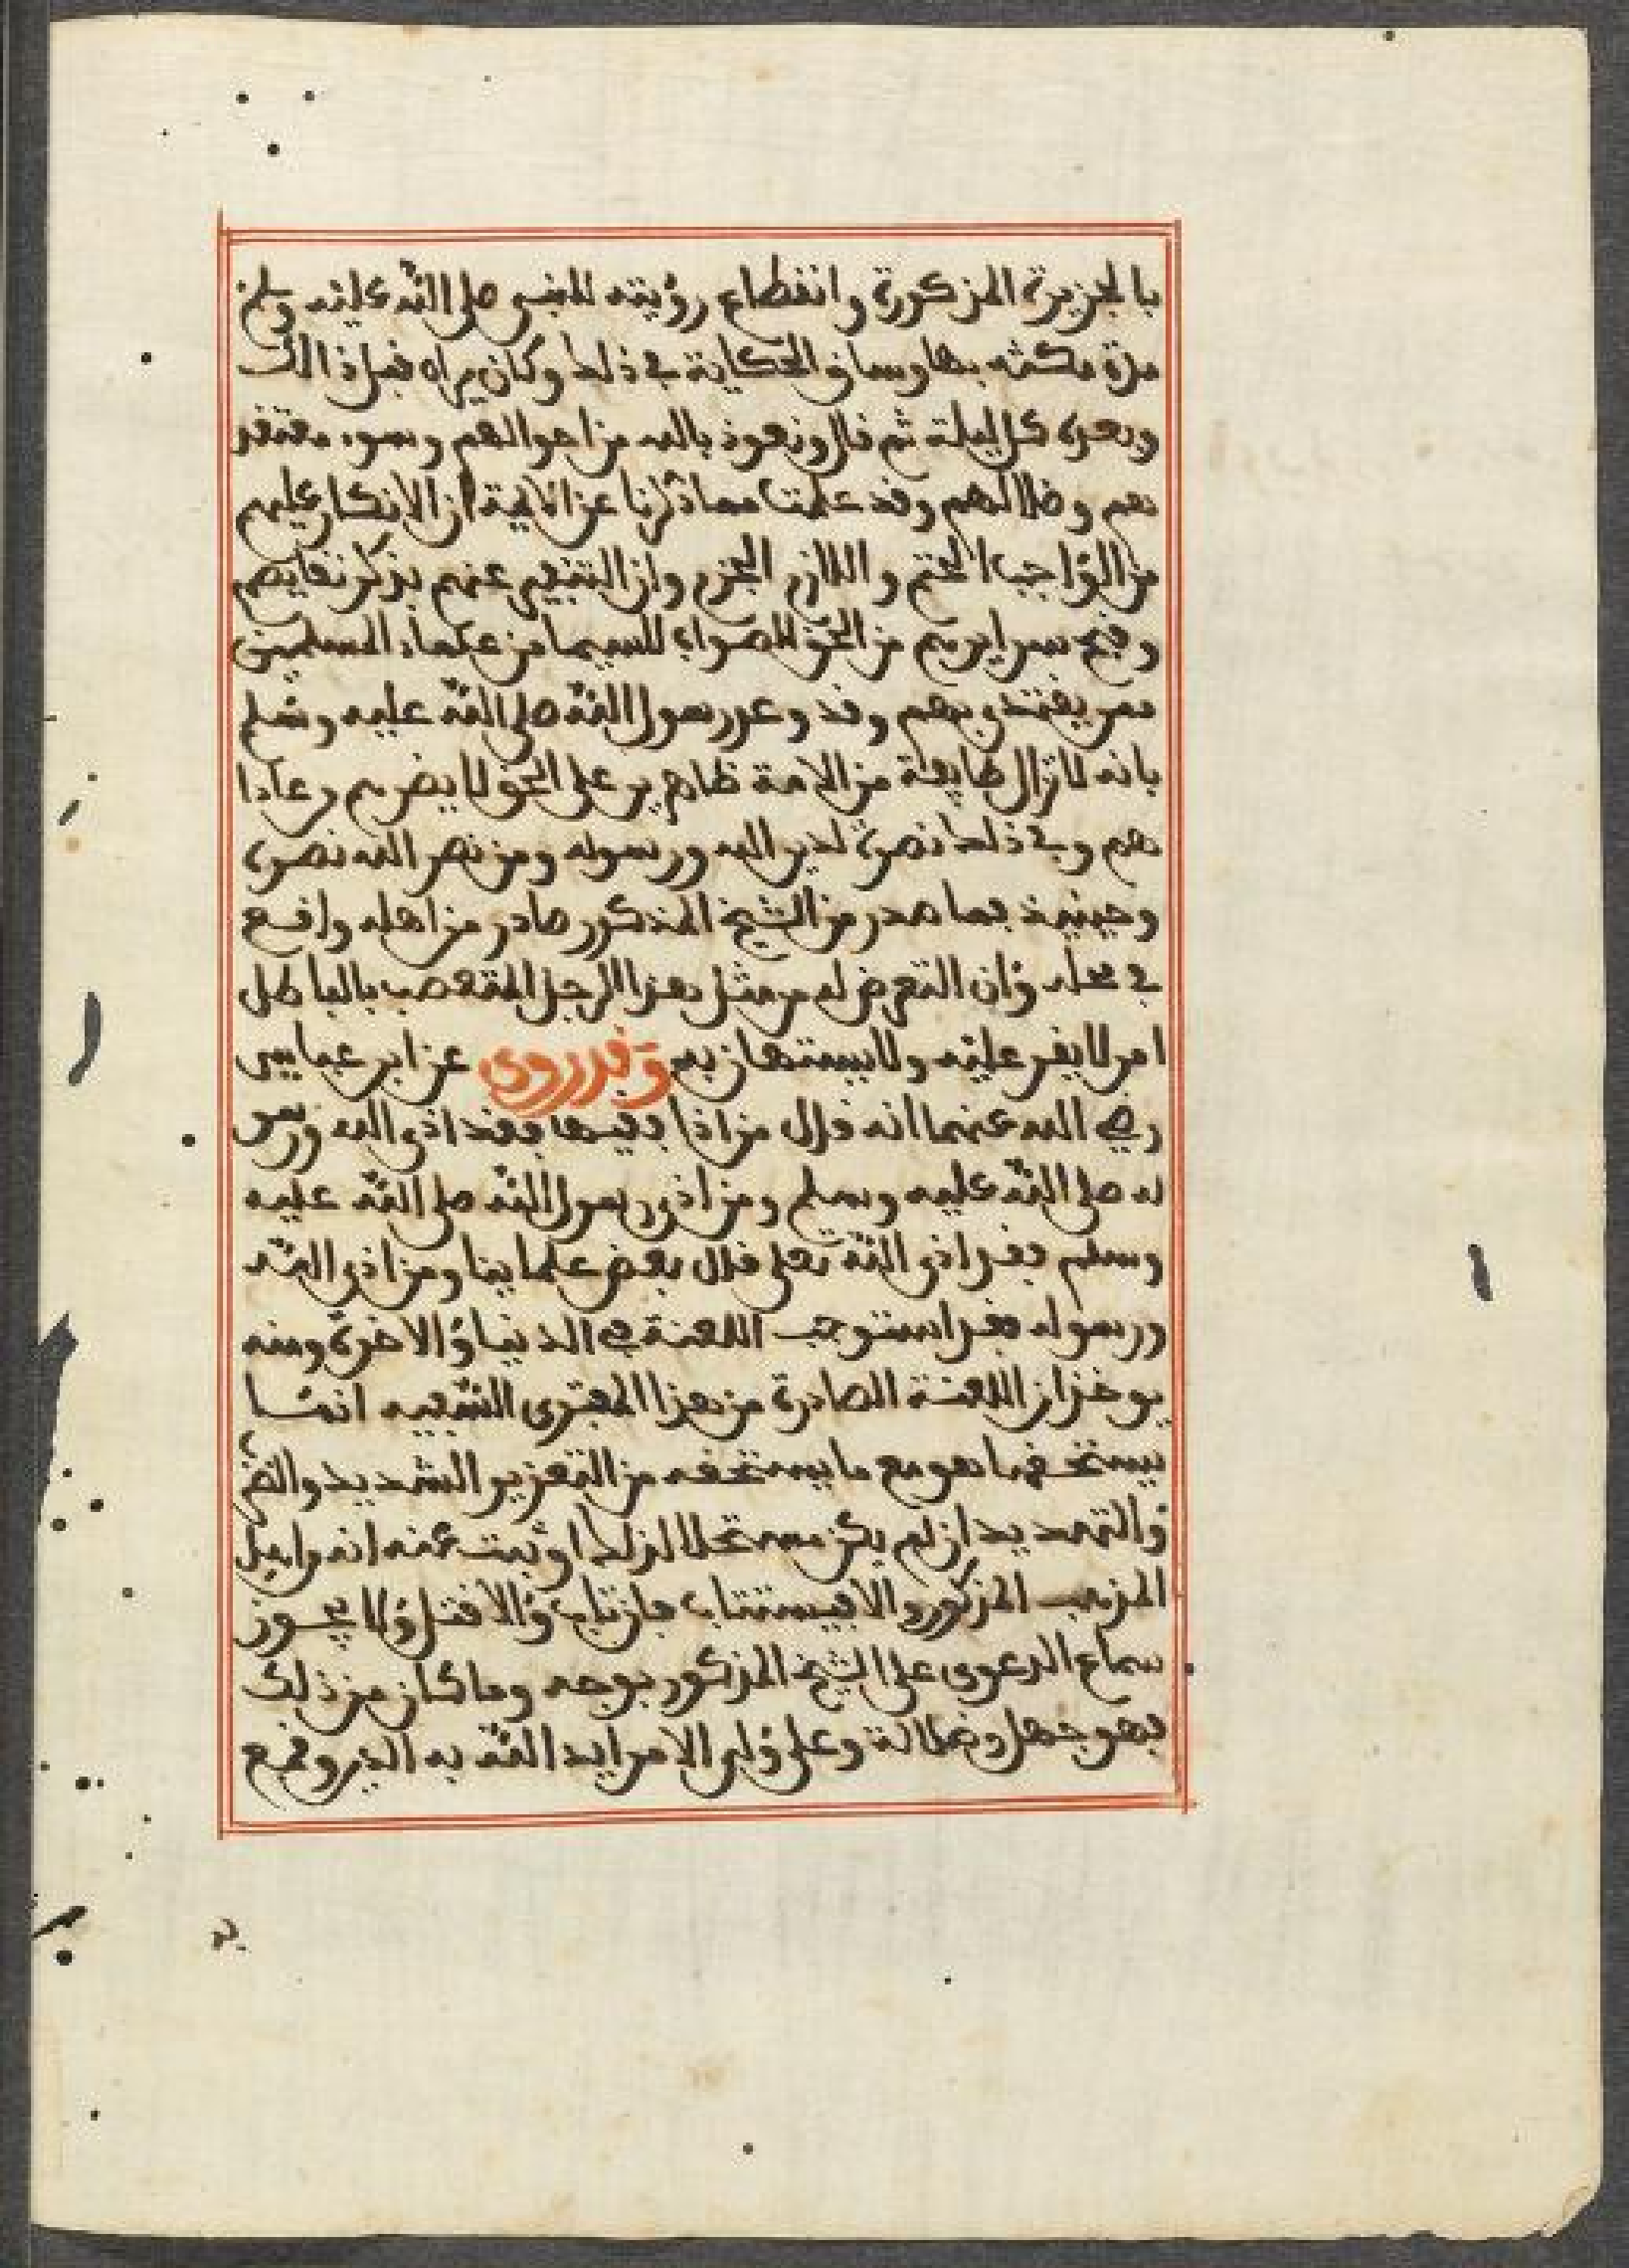 بالجزيرة المذكورة وانقطاع رؤيته للنبي صلى الله عليه وسلم
مدة مكثه بها وساق الحكاية في ذلك وكان يراه قبل ذالك
وبعده كل ليلة ثم قال ونعوذ بالله من احوالهم وسوء معتقد
هم وضلالهم وقد علمت مما ذكرنا عن الايمة ان الانكار عليهم
من الواجب الحتم واللازم الجزم وان التنفير عنهم بذكر نقايصهم
وقبح سرايرهم من الحق للصواب للسيما من علماء المسلمين
ممن يقتدى بهم وقد وعد رسول الله صلى الله عليه وسلم
بانه لا تزال طايفة من الامة ظاهرين على الحق لا يضرهم من عادا
هم وفي ذلك نصرة لدين الله ورسوله ومن نصر الله نصره
وحينيذ فما صدر من الشيخ المذكور صادر من اهله واقع
في محله وان التعرض له من مثل هذا الرجل المتعصب بالباطل
امر لا يقر عليه ولا يستهان به وقد روى عن ابن عباس
رضي الله عنهما انه قال من اذا فقيها فقد اذى الله ورسو
له صلى الله عليه وسلم ومن اذى رسول الله صلى الله عليه
وسلم فقد اذى الله تعلى قال بعض علماينا ومن اذى الله
ورسوله فقد استوجب اللعنة في الدنيا والاخرة ومنه
يوخذ ان اللعنة الصادرة من هذا المفترى السفيه انما
يستحقها هو مع ما يستحقه من التعزير الشديد والضر
والتهديد ان لم يكن مستحلا لذلك او ثبت عنه انه من اهل
المذهب المذكور والا فيستتاب فان تاب والا قتل ولا يجوز
سماع الدعوى على الشيخ المذكور بوجه وما كان من ذلك
فهو جهل وضلالة وعلى ولي الامر ايد الله به الدين وقمع
به